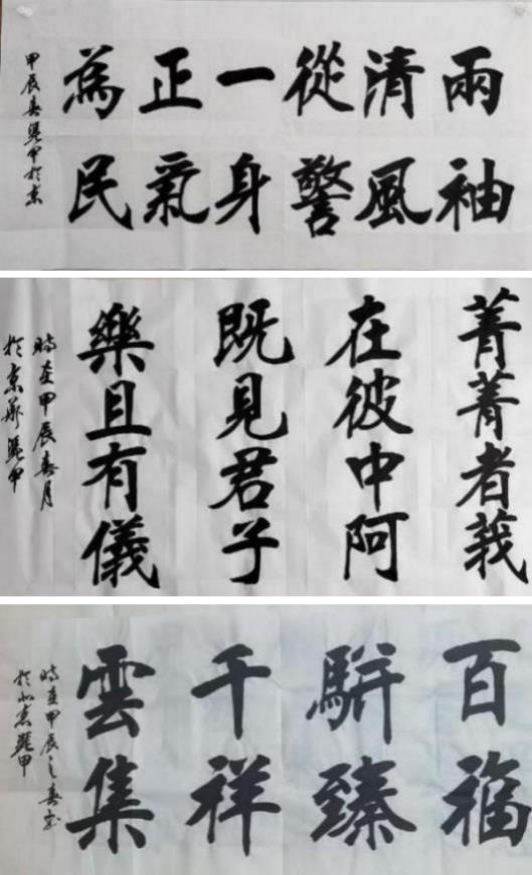 兩袖
清風
從警
一身
正氣
為民
甲辰春甲於京
菁菁者莪
在彼中阿
既見君子
樂且有儀
時在甲辰春月
於京郊甲
百福
駢臻
千祥
雲集
時在甲辰之春書
於北京甲